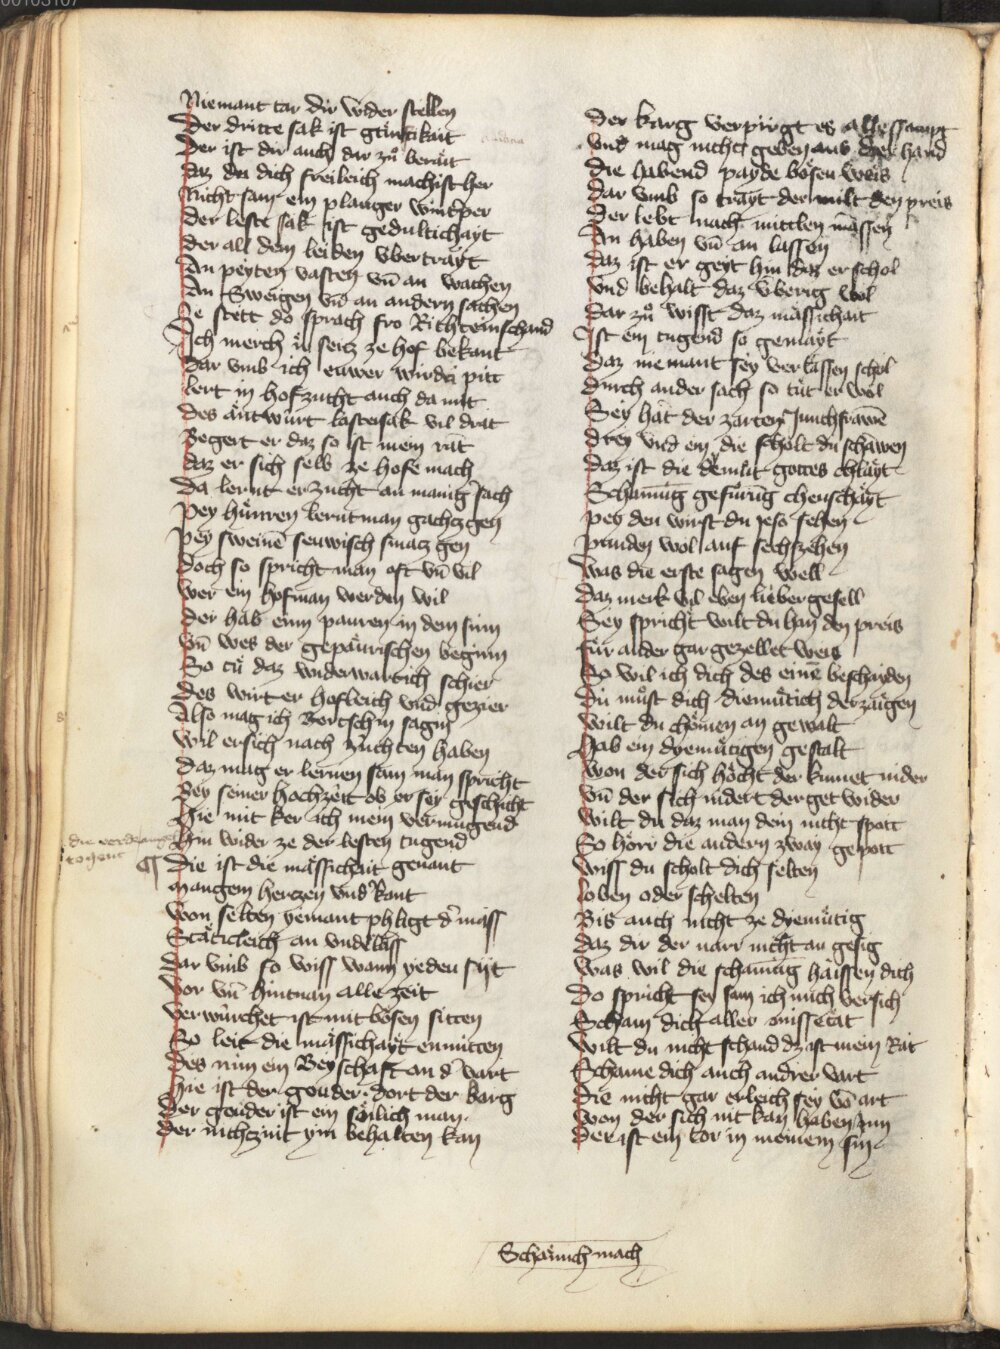 Niemant tar dir wider stellen
Der dritte sak ist gtürstikait
Der ist dir auch dar zů berait
daz du dich freileich machist her
Richt sam ein planger wintper
Der leste sak ist gedultichayt
der all dem leiden vbertrayt
An peyten vasten vn̄ an wachen
An Sweigen vnd an andern sachen
Ze stett do sprach fro Richteinschand
Ich merch üwserz ze hof bekant
Dar vmb ich euwer wirde pitt
lert in hofzucht auch da mit
des antwürt lastersak vil drat
Begert er daz so ist mein rat
daz er sich selb ze hofe mach
Da lernt er zucht an manig sach
Pey hünren lernt man gachczgen
Pey sweinē seuwisch smaczgen
doch so spricht man oft vn̄ vil
wer ein hofman werden wil
der hab einn pauren in dem sinn
Vn̄ wes der gepäurischen beginn
So tü daz widerwärtich schier
des wirt er hofleich vnd gezier
Also mag ich Bertschin sagin
wil er sich nach züchten haben
daz mag er lernen sam man spricht
Pey seiner hochzeit ob er sey geschicht
Hie mit ker ich mein vermugend
Hin wider ze der lesten tugend
die ist die mässichait genant
Mangem herczen vnd̛kant
won selten yemant phligt d̛ mass
Stäticleich an vnd̛lass
dar vmb so wiss wann yeden seyt
vor vn̄ hintnan alle zeit
verwürchet ist mit bösen sitten
So leit die mässichayt enmitten
des nim ein Beyschaft an d̛ vart
Hie ist der geuder dort der karg
Der geuder ist ein söilich man
Der nichcznit ym behalten kan
Der karg verpirgt es allessampt
Vnd mag nichtz geben aus der hand
die habend payde bösen weis
dar vmb so trayt der milt den preis
Der lebt nach mittlen mässen
An haben vn̄ an lassen
daz ist er geyt hin daz er schol
vnd behalt daz vberig wol
dar zů wisst daz mässichait
Ist ein tugend so gemäyt
daz niemant sey verlassen schol
durch ander sach so tüt er wol
Sey hat der zarten Junchfrawē
drey vnd ein die scholt du schawen
daz ist die demüt gottes chlayt
Schamung gefürig cheuschäyt
Pey den wirst du yeso sehen
Pauden wol auf sechszehen
was die erste sagen well
daz merk vil eben lieber gesell
Sey spricht wilt du han den preis
für ander gar gezellet weis
So wil ich dich des einē beschayden
Du müst dich diemütich derzäigen
wilt du chömen an gewalt
hab ein dyemütigen gestalt
won der sich höcht der kumet nider
Vn̄ der sich nidert der get wider
wilt du daz man dein nicht spott
So hör die andern zway gepott
wiss du scholt dich selten
loben oder schelten
Bis auch nicht ze dyemütig
daz dir der narr nicht an gesig
was wil die schamung haissen dich
do spricht sey sam ich mich versich
Scham dich aller missetat
wilt du nicht schand dz ist mein Rat
Schame dich auch andrer vart
die nicht gar erleich sey vō art
won der sich nit kan haben inn
der ist ein tor in meinem sin
Schämich mach